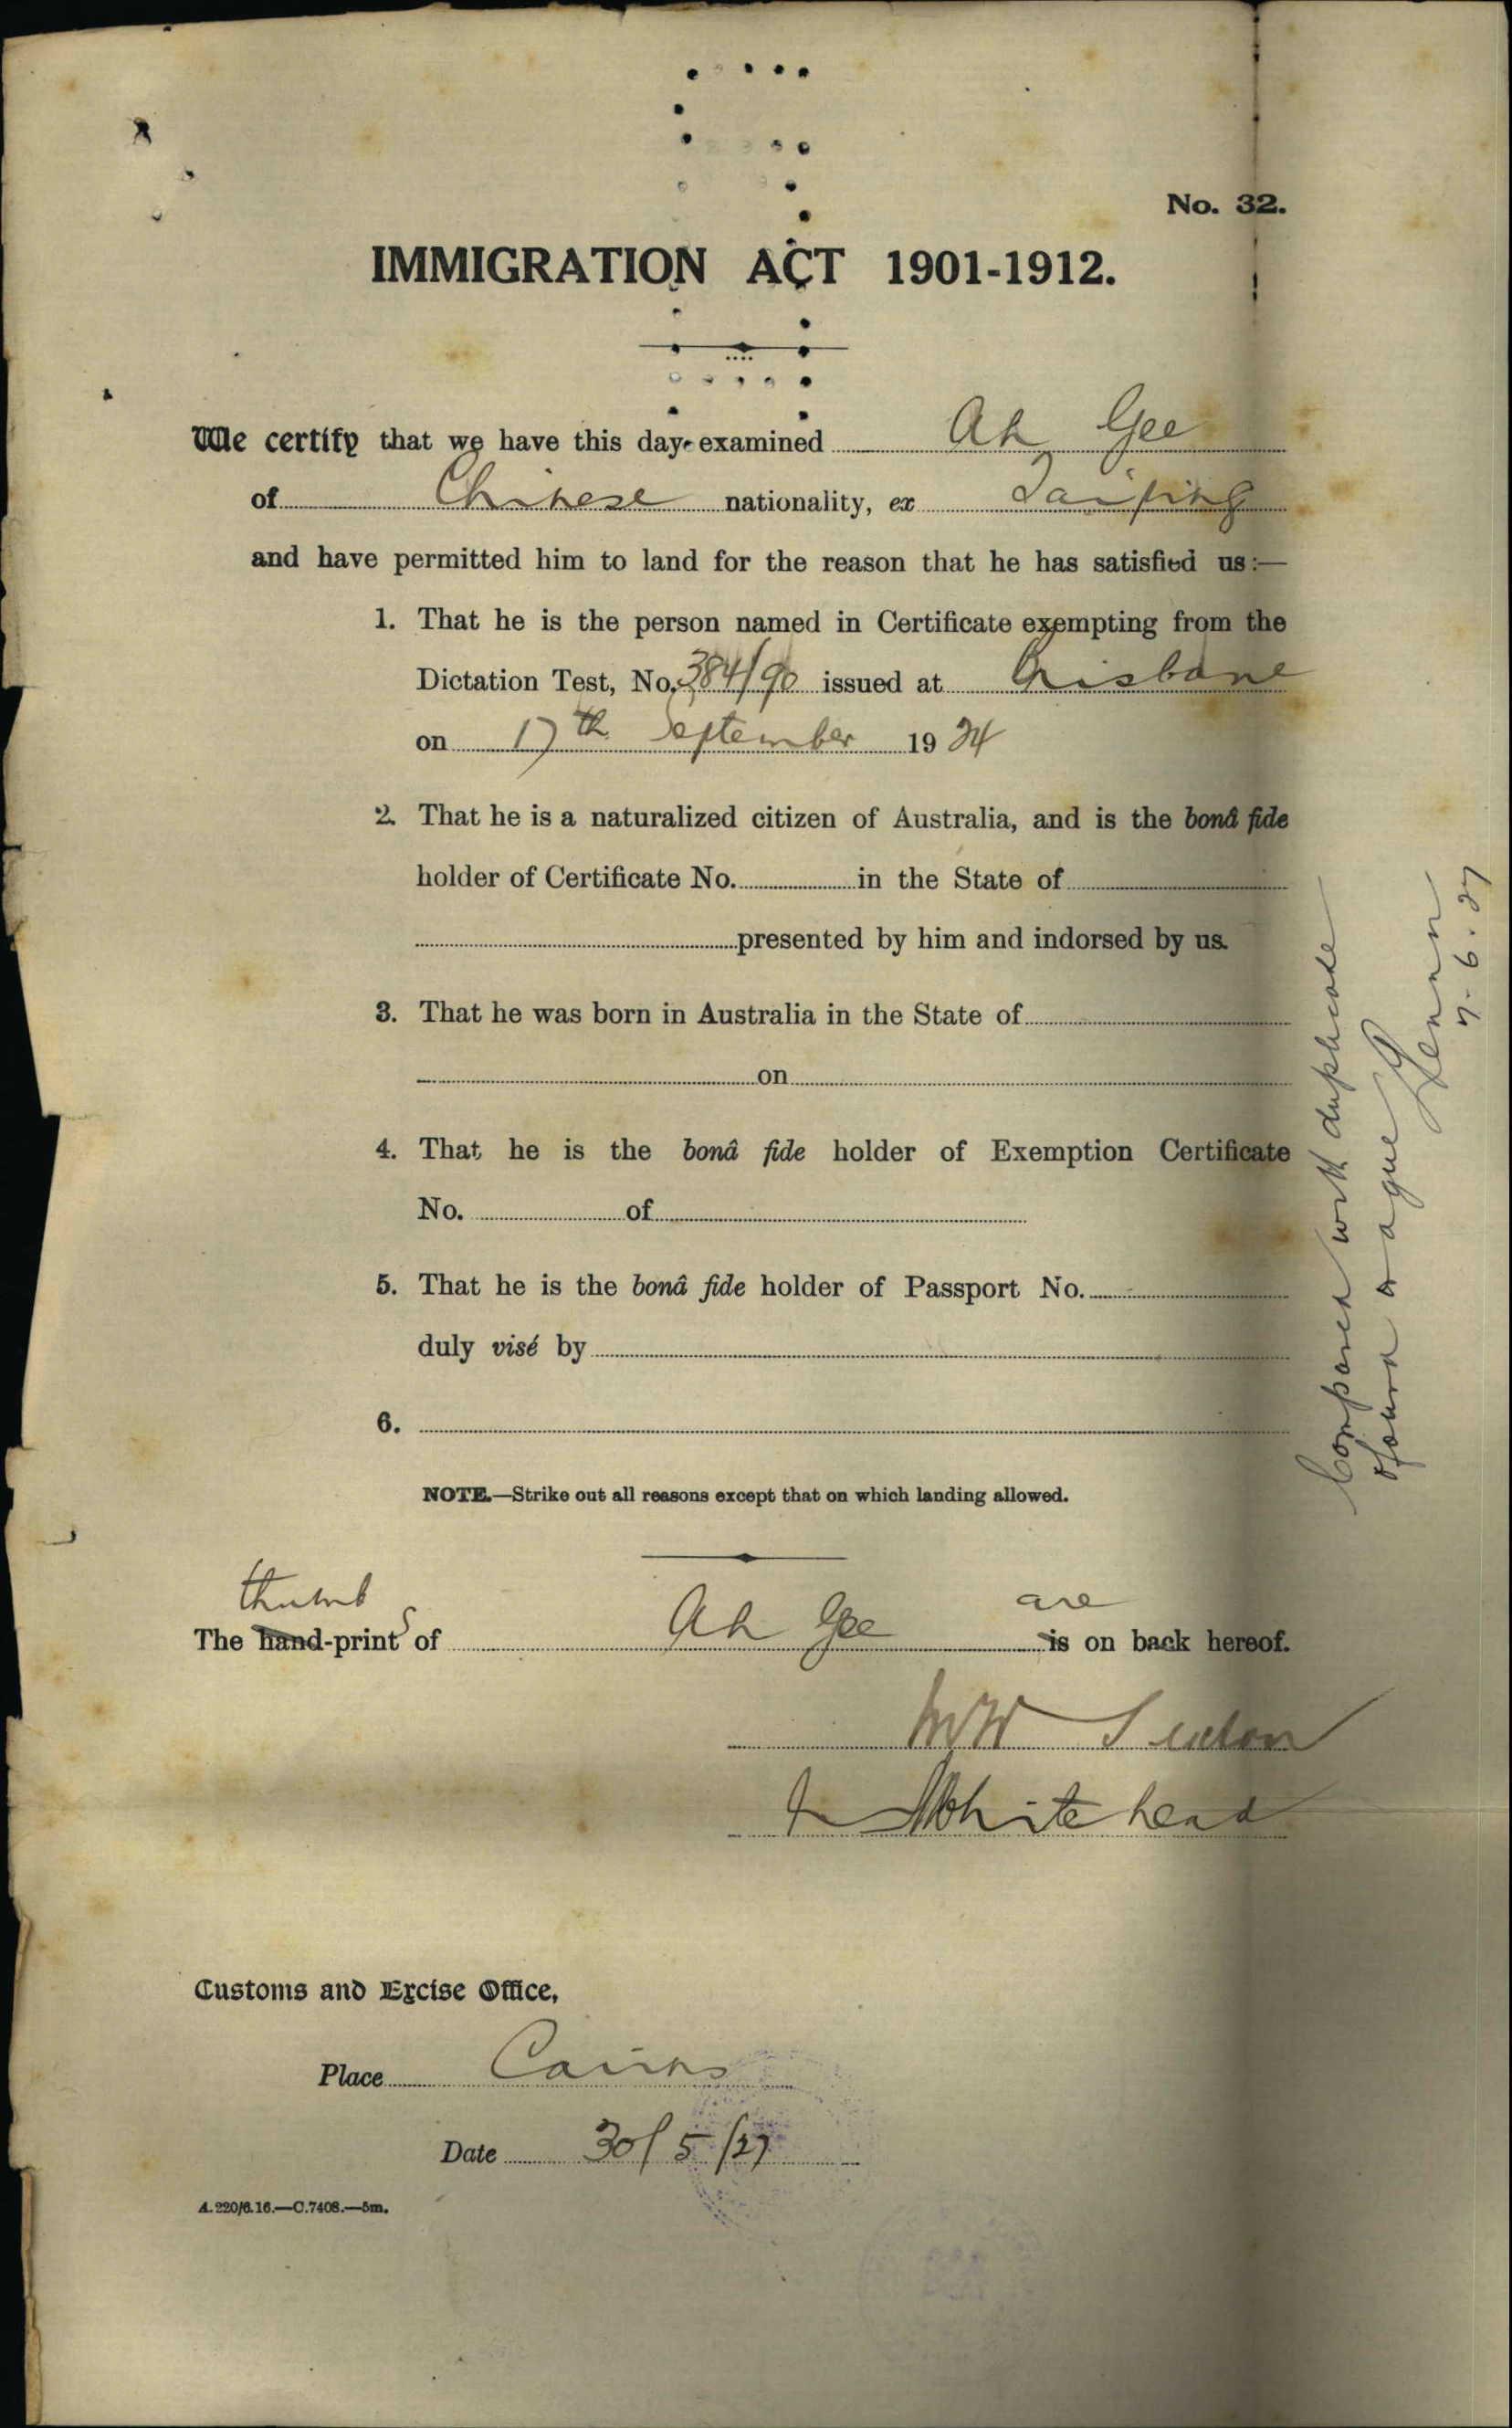 No. 32.
IMMIGRATION ACT 1901-1912.
We certify that we have this day examined Ah Gee
of Chinese nationality, ex Taiping
and have permitted him to land for the reason that he has satisfied us:—
1. That he is the person named in Certificate exempting from the
Dictation Test, No. 384/90 issued at Brisbane
on 17th September 1924
2. That he is a naturalized citizen of Australia, and is the bonâ fide
holder of Certificate No. in the State of
presented by him and indorsed by us.
3. That he was born in Australia in the State of
on
4. That he is the bonâ fide holder of Exemption Certificate
No. of
5. That he is the bonâ fide holder of Passport No.
duly visé by
6.
NOTE.—Strike out all reasons except that on which landing allowed.
thumb are
The hand-prints of Ah Gee is on back hereof.
Whitehead
Customs and Excise Office,
Place Cairns
Date 30/5/27
A.220/6.16.—C.7408.—5m.
Compared with duplicate
found to agree
7.6.27